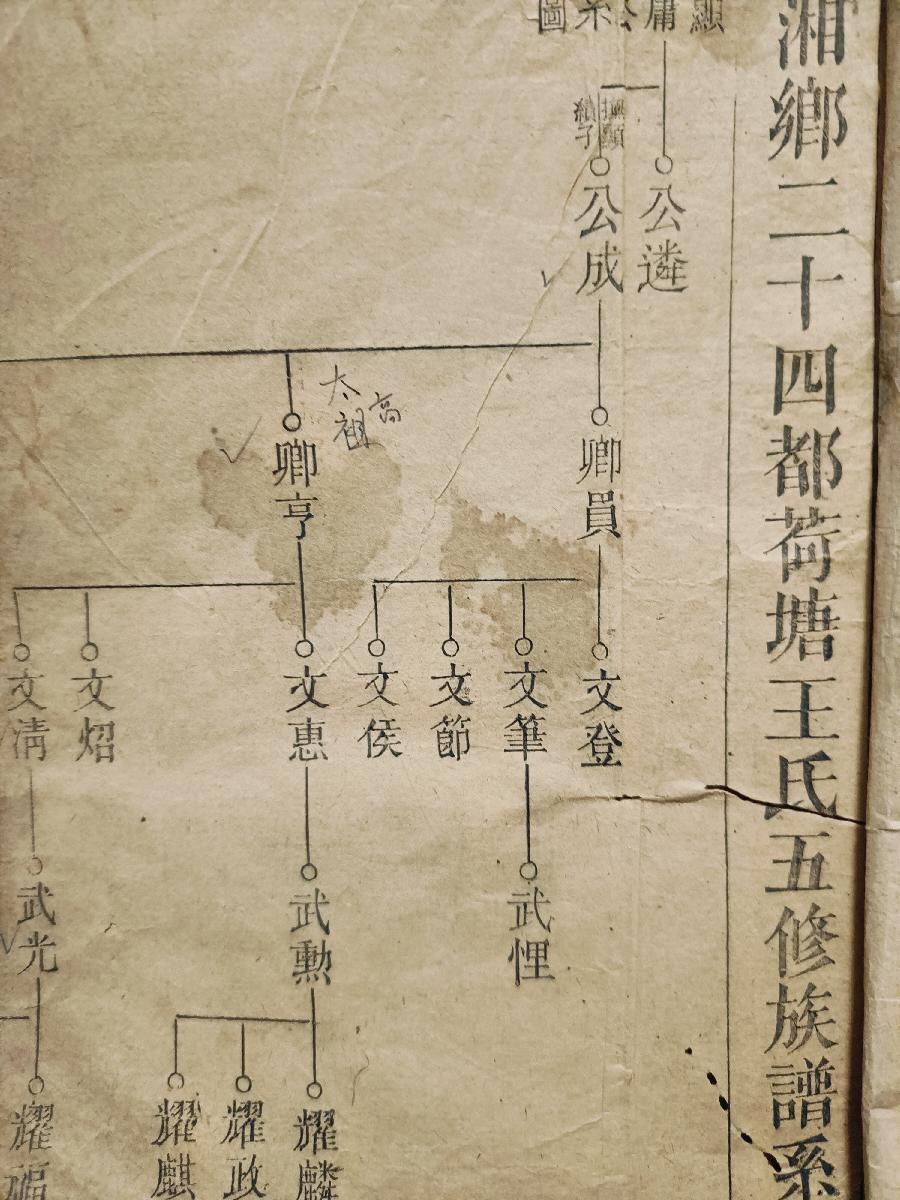 湘鄉二十四都荷塘王氏五修族譜系
顯
庸公
系
圖
公遴
撫顯
績子
公成
卿員
太高祖
卿亨
文登
文筆
文節
文侯
文惠
文炤
文清
武悝
武勳
武光
耀麟
耀政
耀麒
耀福